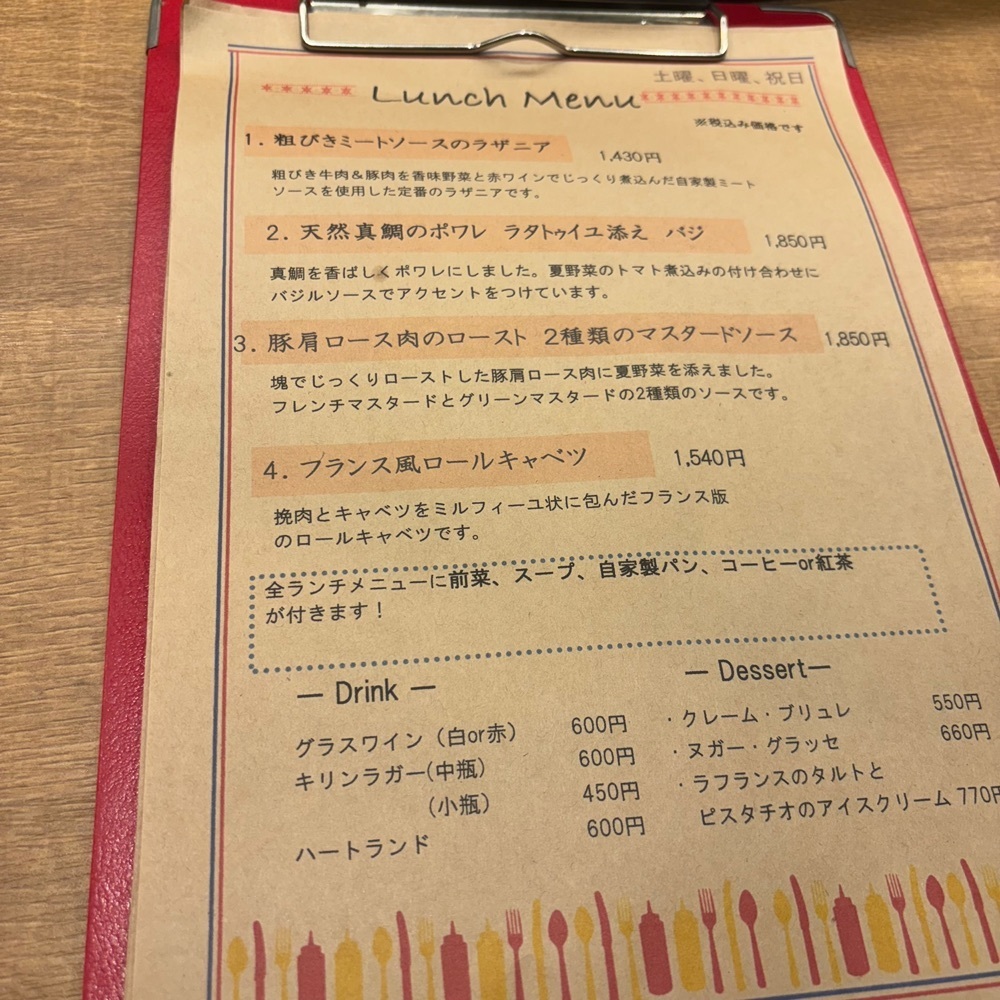 土曜、日曜、祝日
Lunch Menu
※税込み価格です
1. 粗びきミートソースのラザニア 1,430円
粗びき牛肉&豚肉を香味野菜と赤ワインでじっくり煮込んだ自家製ミート
ソースを使用した定番のラザニアです。
2. 天然真鯛のポワレ ラタトゥイユ添え バジ 1,850円
真鯛を香ばしくポワレにしました。夏野菜のトマト煮込みの付け合わせに
バジルソースでアクセントをつけています。
3. 豚肩ロース肉のロースト 2種類のマスタードソース 1,850円
塊でじっくりローストした豚肩ロース肉に夏野菜を添えました。
フレンチマスタードとグリーンマスタードの2種類のソースです。
4. フランス風ロールキャベツ 1,540円
挽肉とキャベツをミルフィーユ状に包んだフランス版
のロールキャベツです。
全ランチメニューに前菜、スープ、自家製パン、コーヒーor紅茶
が付きます！
― Drink ―
グラスワイン（白or赤） 600円
キリンラガー(中瓶) 600円
(小瓶) 450円
ハートランド 600円
― Dessert―
・クレーム・ブリュレ 550円
・ヌガー・グラッセ 660円
・ラフランスのタルトと
ピスタチオのアイスクリーム 770円